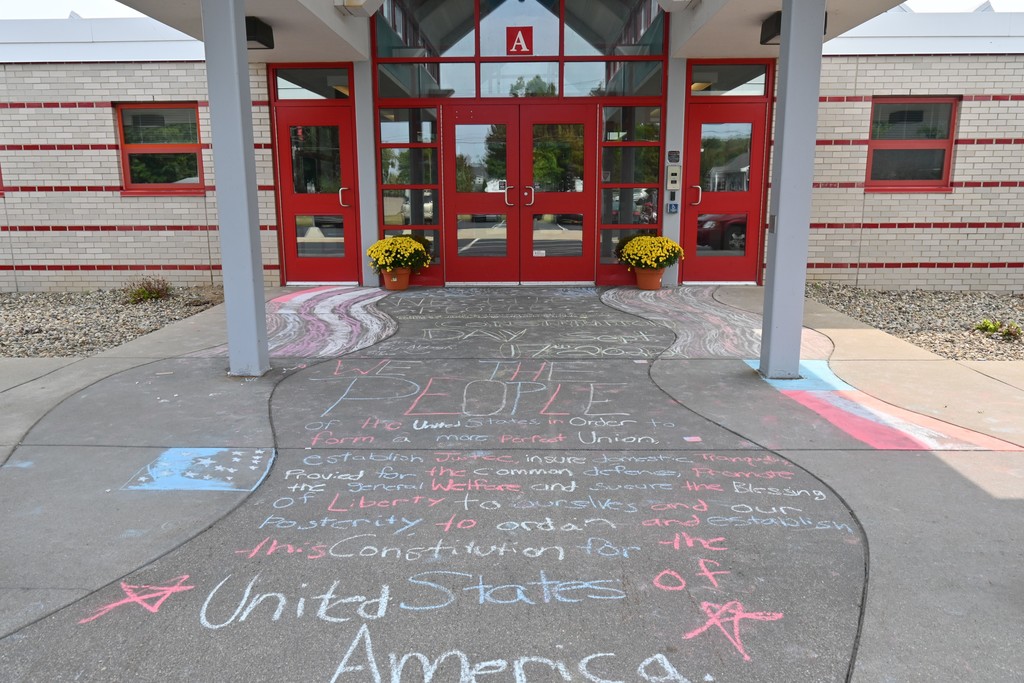 A
DAY Sept
WE THE
PEOPLE
of the United States in Order to
form a more Perfect Union.
establish Justice insure domestic Tranquility
Provied for the common defense, Promote
the general Welfare and sucure the Blessing
of Liberty to ourselves and our
Posterity to ordan and establish
this Constitution for the
United States of
America.